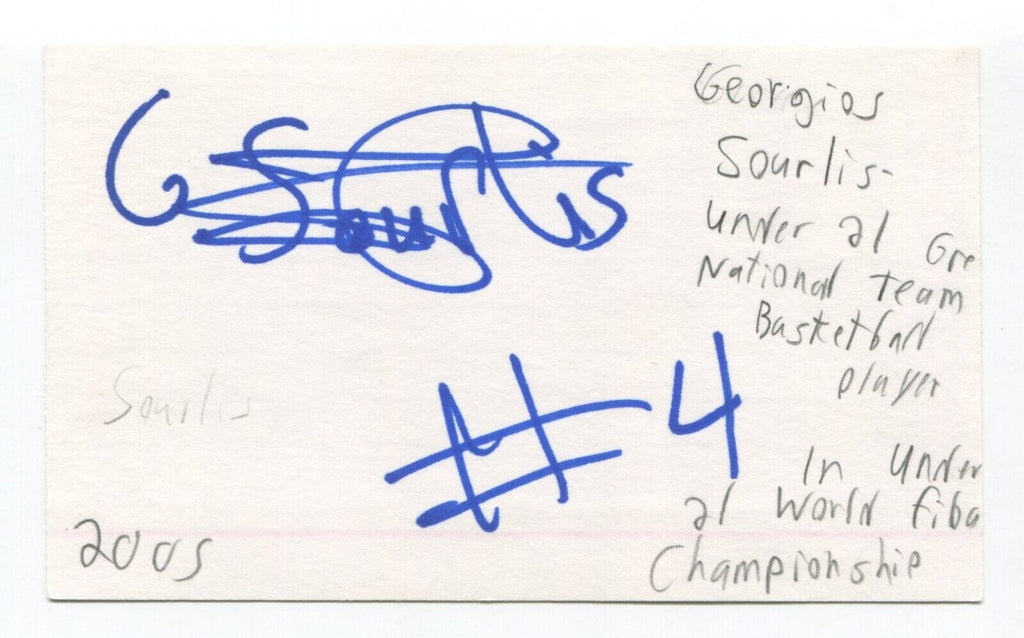 G Sourlis
#4
Georgios
Sourlis-
under 21 Gre
National Team
Basketball
player
In under
21 World Fiba
Championship
Sourlis
2005